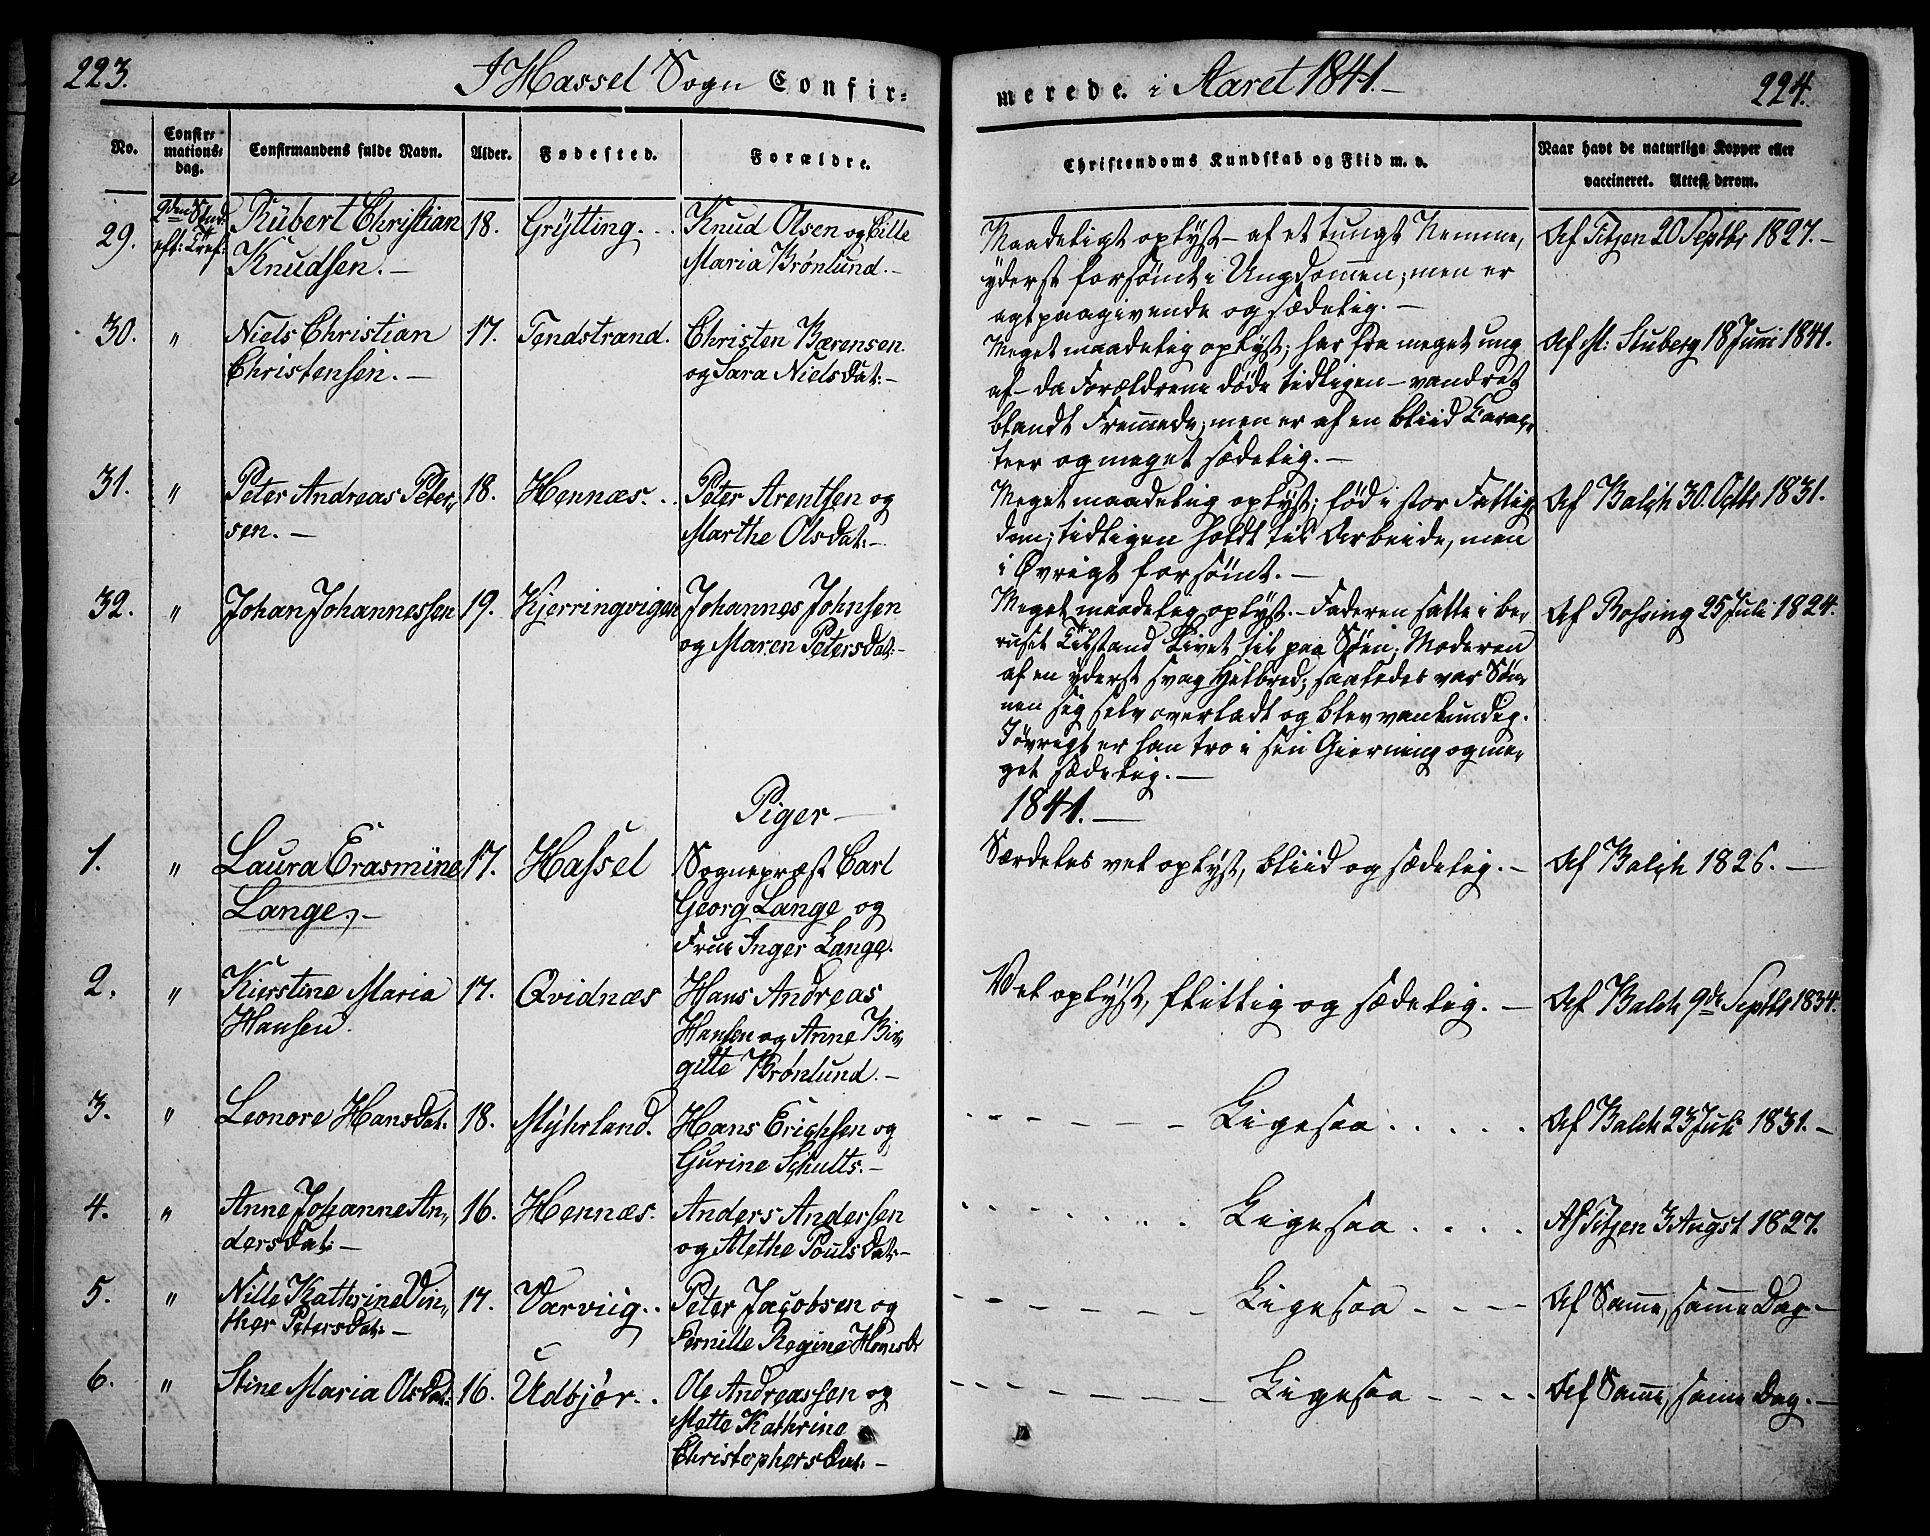 223.
I Hassel Sogn Confir-
merede. i Aaret 1841.-
224.
No.
Confir-
mations-
dag.
Confirmandens fulde Navn.
Alder.
Fødested.
Forældre.
Christendoms Kundskab og Flid m. v.
Naar havt de naturlige Kopper eller
vaccineret. Attest derom.
29.
9den Sönd.
eft: Tref:
Rübert Christian
Knudsen.-
18.
Grÿtting.
Knud Olsen og Cille
Maria Brónlund.-
Maadeligt oplyst - af et tungt Nemme,
yderst forsömt i Ungdommen; men er
agtpaagivende og sædelig.-
Af Titzen 20 Septbr 1827.-
30.
"
Niels Christian
Christensen.-
17.
Tendstrand.
Christen Bærensen
og Sara Nielsdat:-
Meget maadelig oplyst; har fra meget ung
af - da Forældrene døde tidligen - vandret
blandt Fremmede; men er af en bliid Carac-
teer og meget sædelig.-
Af M: Stuberg 18 Juni 1841.
31.
"
Peter Andreas Peter-
sen.-
18.
Hennæs.
Peter Arentsen og
Marthe Olsdat:-
Meget maadelig oplyst; fød i stor Fattig-
dom; tidligen holdt til Arbeide, men
i Øvrigt forsömt.-
Af Balch 30. Octbr 1831.
32.
"
Johan Johannessen
19.
Kjerringvigen
Johannes Johnsen
og Maren Petersdat:-
Meget maadelig oplyst.- Faderen satte i be-
ruset Tilstand Livet til paa Søen; Moderen
af en yderst svag Helbred; saaledes var Søn-
nen sig selv overladt og blev vankundig.
Iøvrigt er han tro i sin Gierning og me-
get sædelig.-
Af Rossing 25 Juli 1824.
Piger-
1841.-
1.
"
Laura Erasmine
Lange.-
17.
Hassel
Sognepræst Carl
Georg Lange og
Frue Inger Lange.
Særdeles vel oplyst, bliid og sædelig.-
Af Balch 1826.-
2.
"
Kirstine Maria
Hansen.
17.
Qvidnæs
Hans Andreas
Hansen og Anne Bir-
gitte Brónlund.-
Vel oplÿst, flittig og sædelig.-
Af Balch 9de Septbr 1834.
3.
"
Leonore Hansdat:
18.
Mÿhrland.
Hans Erichsen og
Gurine Schults.-
Ligesaa
Af Balch 23 Juli 1831.-
4.
"
Anne Johanne An-
dersdat:-
16.
Hennæs.
Anders Andersen
og Alethe Poulsdat:-
Ligesaa
Af Titzen 3 Augst 1827.
5.
"
Nille Kathrine Vin-
ther Petersdat:-
17.
Varviig.
Peter Jacobsen og
Pernille Regine Hansdr
Ligesaa
Af Samme, samme Dag-
6.
"
Stine Maria Olsdat:
16.
Udbjør.
Ole Andreassen og
Mette Kathrine
Christophersdat:-
Ligesaa
Af Samme, samme Dag.-